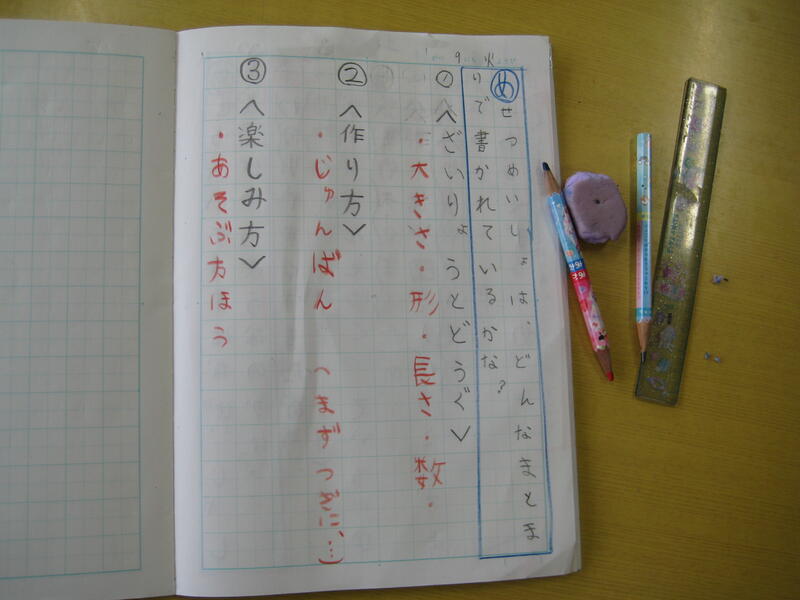 9 火
め せつめいしょは、どんなまとま
りで書かれているかな?
① 〈ざいりょうとどうぐ〉
・大きさ・形・長さ・数・
② 〈作り方〉
・じゅんばん (まず つぎに、…)
③ 〈楽しみ方〉
・あそぶ方ほう